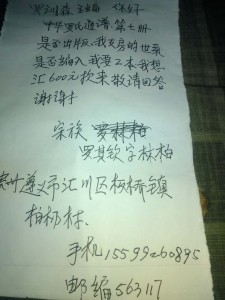 罗训森主编 你好
中华罗氏通谱 第七册
是否出版,我支房的世系
是否编入我要2本我想
汇600元款来敬请回答
谢谢!
宗族
罗其钦字林柏
贵州遵义市汇川区板桥镇
柏杨林.
手机15599260895
邮编563117